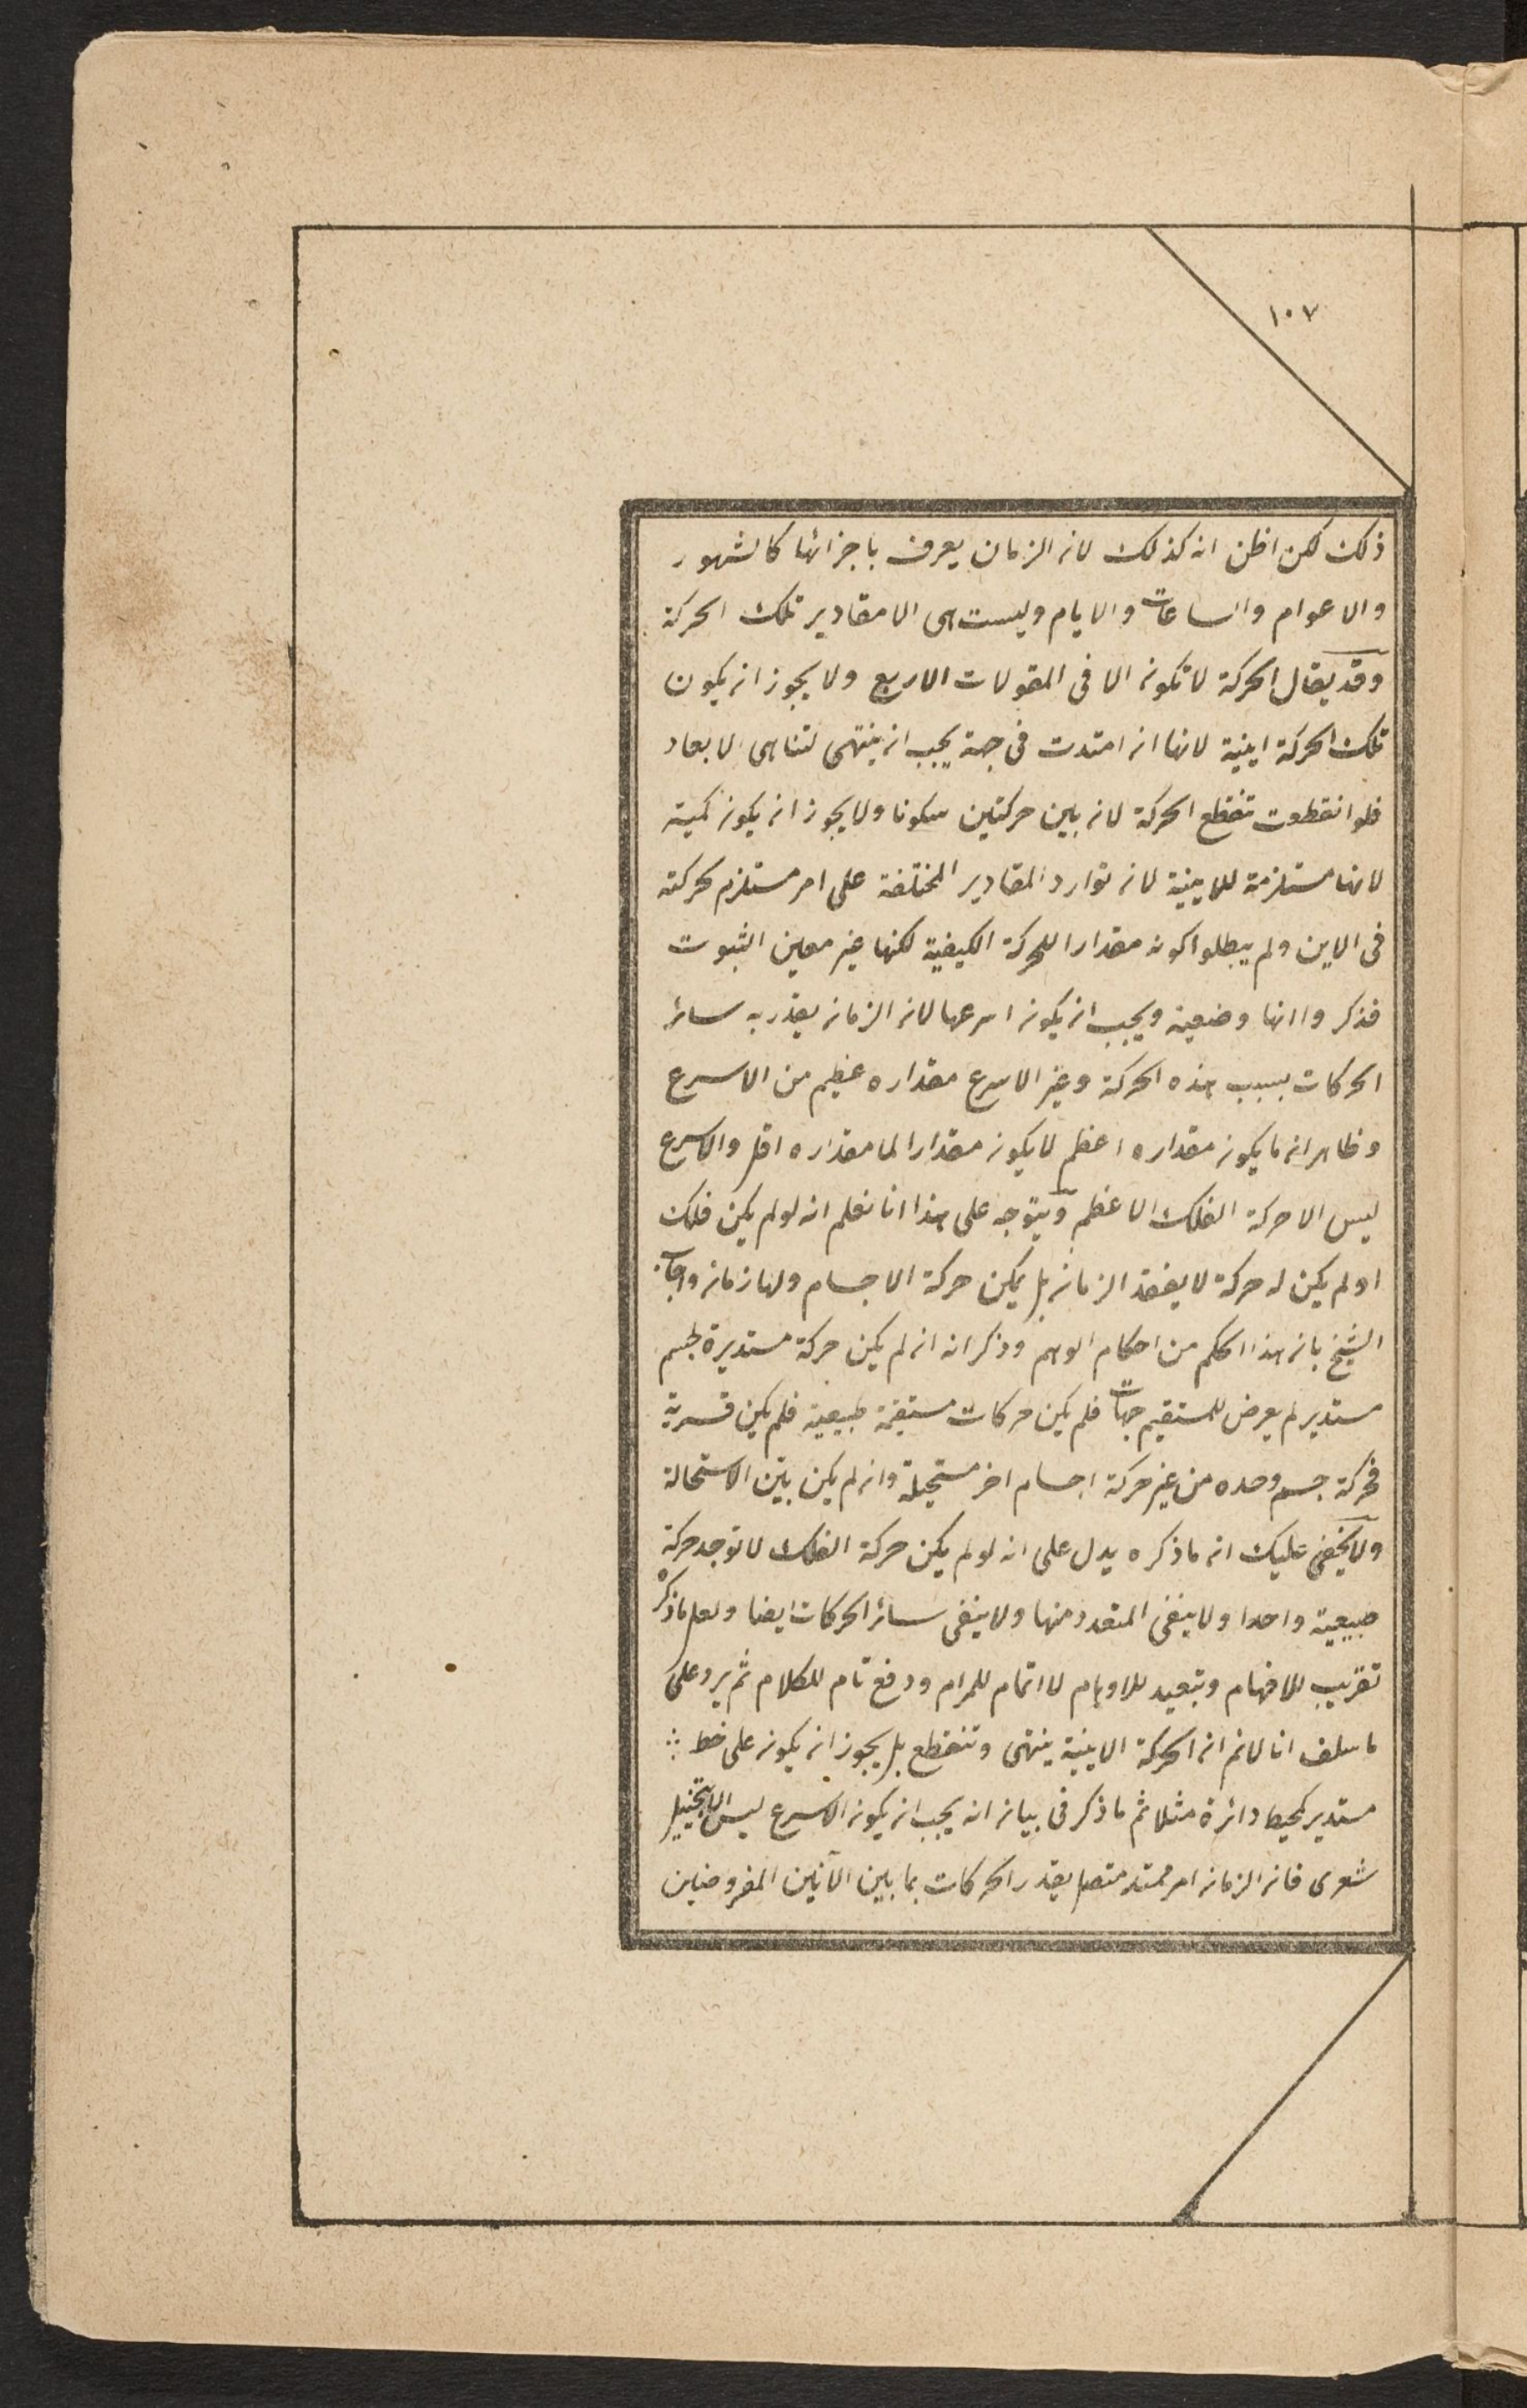 ١٠٧
ذلك لكن اظن انه كذلك لان الزمان يعرف باجزائها كالشهور
والاعوام والساعات والايام وليست هى الا مقادير تلك الحركة
وقد يقال الحركة لا تكون الا فى المقولات الاربع ولا يجوز ان يكون
تلك الحركة اينية لانها ان امتدت فى جهة يجب ان ينتهى لتناهى الابعاد
فلو انقطعت تنقطع الحركة لان بين حركتين سكونا ولا يجوز ان يكون كمية
لانها مستلزمة للاينية لان توارد المقادير المختلفة على امر مستلزم لحركته
فى الاين ولم يبطلوا كونه مقدارا للحركة الكيفية لكنها غير معين الثبوت
فذكروا انها وضعية ويجب ان يكون اسرعها لان الزمان يقدر به سائر
الحركات بسبب هذه الحركة وغير الاسرع مقداره عظيم من الاسرع
وظاهر ان ما يكون مقداره اعظم لا يكون مقدارا لما مقداره اقل والاسرع
ليس الا حركة الفلك الاعظم ويتوجه على هذا انا نعلم انه لو لم يكن فلك
او لم يكن له حركة لا يفقد الزمان بل يمكن حركة الاجسام ولها زمان واجاب
الشيخ بان هذا الحكم من احكام الوهم وذكر انه ان لم يكن حركة مستديرة لجسم
مستدير لم يعرض للمستقيم جهات فلم يكن حركات مستقيمة طبيعية فلم يكن قسرية
فحركة جسم وحده من غير حركة اجسام اخر مستحيلة وان لم يكن بيّن الاستحالة
ولا يخفى عليك ان ما ذكره يدل على انه لو لم يكن حركة الفلك لا توجد حركة
طبيعية واحدا ولا ينفى المتعدد منها ولا ينفى سائر الحركات ايضا ولعل ما ذكره
تقريب للافهام وتبعيد للاوهام لا اتمام للمرام ودفع تام للكلام ثم يرد على
ما سلف انا لانم ان الحركة الاينية ينتهى وتنقطع بل يجوز ان يكون على خط
مستدير كمحيط دائرة مثلا ثم ما ذكر فى بيان انه يجب ان يكون الاسرع ليس الا بتخييل
شعرى فان الزمان امر ممتد متصل يقدر الحركات بما بين الآنين المفروضين